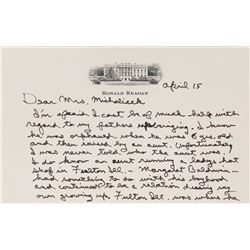 RONALD REAGAN
April 15
Dear Mrs. Mihalicek
I'm afraid I can't be of much help with
regard to my fathers upbringing. I know
he was orphaned when he was 6 yrs. old
and then raised by an aunt. Unfortunately
I was never told who the aunt was. I
do know an aunt running a ladys hat
shop in Fulton Ill. – Margaret Baldwin –
had something to do with his boyhood
and continued to be a relation during my
own growing up. Fulton Ill. was where he